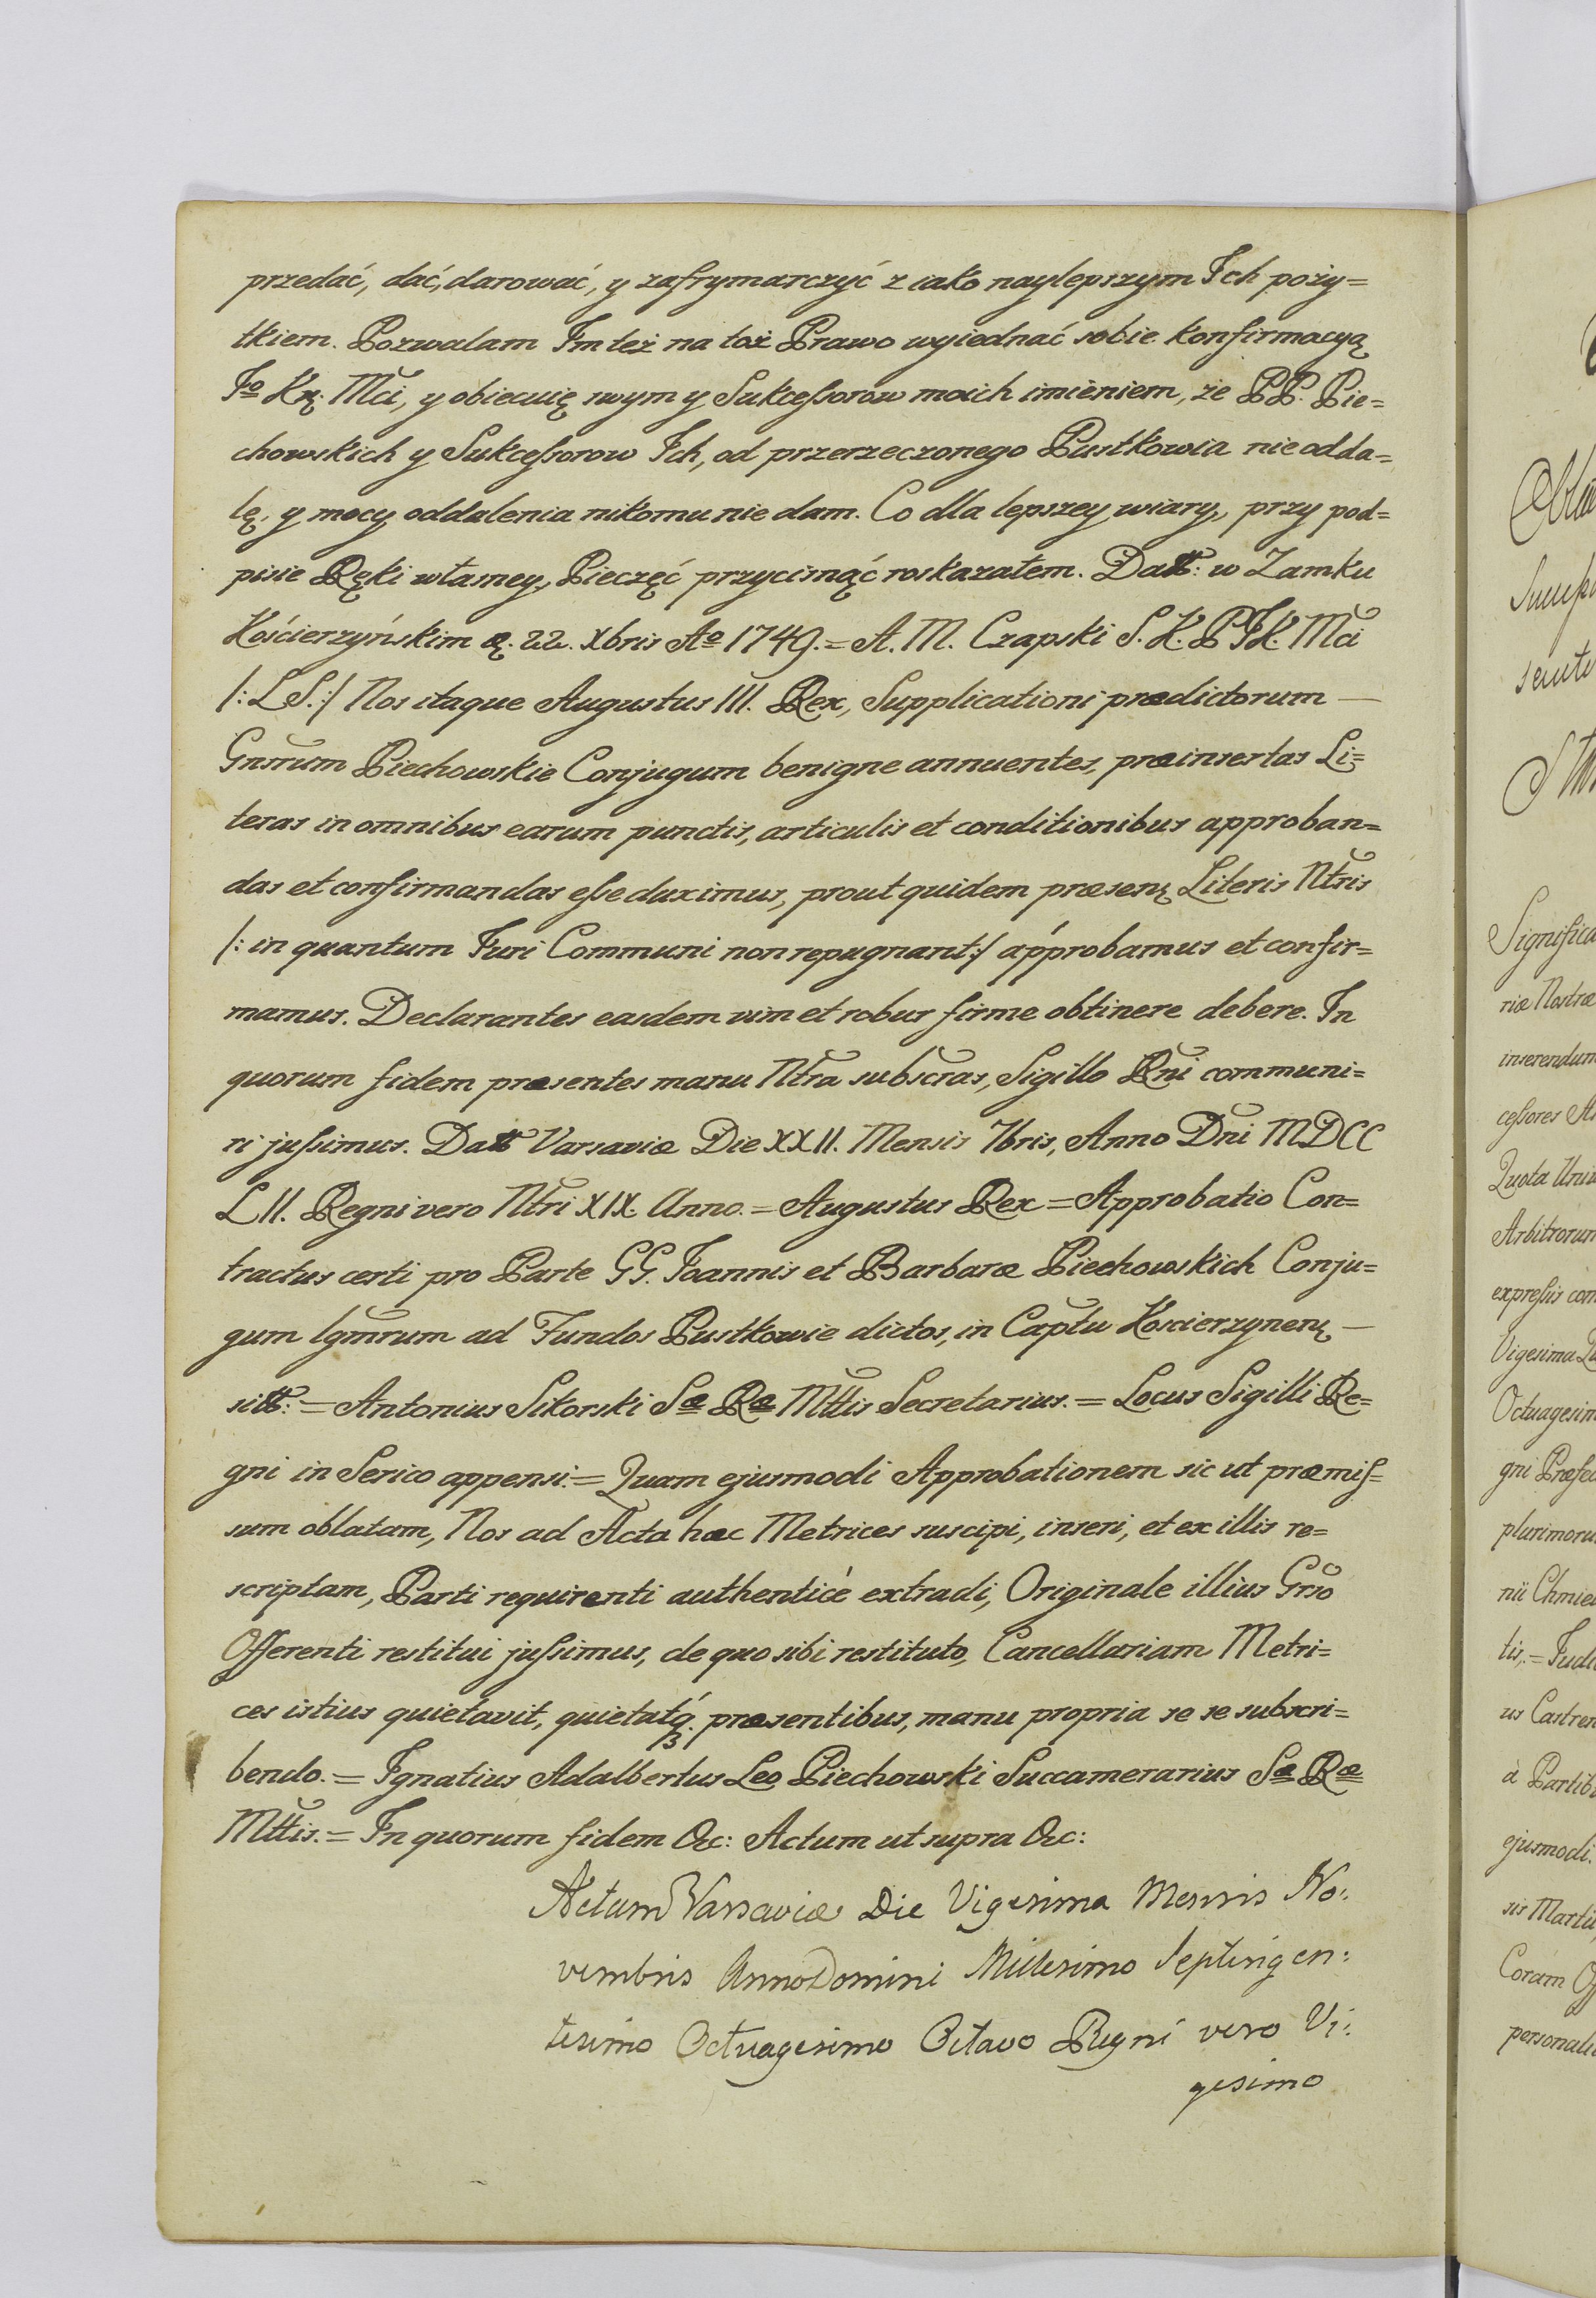 przedać, dać, darować, y zafrymarczyć z iako naylepszym Ich poży=
tkiem. Pozwalam Im też na toż Prawo wyiednać sobie konfirmacyą
Jo Kr. Mci, y obiecuię swym y Sukceſsorow moich imieniem, że PP. Pie=
chowskich y Sukceſsorow Ich, od przerzeczonego Pustkowia nie odda=
lę, y mocy oddalenia nikomu nie dam. Co dla lepszey wiary, przy pod=
pisie Ręki własney, Pieczęć przycisnąć roskazałem. Datt: w Zamku
Kościerzyńskim d. 22. Xbris Ao 1749. = A. M. Czapski S. K. P JK. Mci
/: L S.:/ Nos itaque Augustus III. Rex, Supplicationi prædictorum —
Gnsrum Piechowskie Conjugum benigne annuentes, præinsertas Li=
teras in omnibus earum punctis, articulis et conditionibus approban=
das et confirmandas eſse duximus, prout quidem præsenę Literis Ntris
/: in quantum Juri Communi non repugnant:/ approbamus et confir=
mamus. Declarantes easdem vim et robur firme obtinere debere. In
quorum fidem præsentes manu Ntra subscras, Sigillo Rni communi=
ri juſsimus. Datt Varsaviæ Die XXII. Mensis 7bris, Anno Dni MDCC
LII. Regni vero Ntri XIX. Anno. = Augustus Rex = Approbatio Con=
tractus certi pro Parte GG. Joannis et Barbaræ Piechowskich Conju=
gum lgmrum ad Fundos Pustkowie dictos, in Captu Koscierzynenę —
sitt: = Antonius Sikorski Sæ Ræ Mttis Secretarius. = Locus Sigilli Re=
gni in Serico appensi. = Quam ejusmodi Approbationem sic ut præmiſ=
sum oblatam, Nos ad Acta hæc Metrices suscipi, inseri, et ex illis re=
scriptam, Parti requirenti authenticè extradi, Originale illius Grso
Offerenti restitui juſsimus, de quo sibi restituto, Cancellariam Metri=
ces istius quietavit, quietatq3. præsentibus, manu propria se se subscri=
bendo. = Ignatius Adalbertus Leo Piechowski Succamerarius Sæ Ræ
Mttis. = In quorum fidem &c: Actum ut supra &c:
Actum Varsaviæ Die Vigesima Mensis No:
vembris Anno Domini Millesimo Septingen:
tesimo Octuagesimo Octavo Regni vero Vi:
gesimo
Significa
riæ Nostræ
inserendum
ceſsores
Quota
Arbitrorum
expreſsis
Vigesima
Octuagesim
gni
plurimoru
nii
tis, =
us Castren
à Partib
ejusmodi.
sis Martii
Coram
personalit